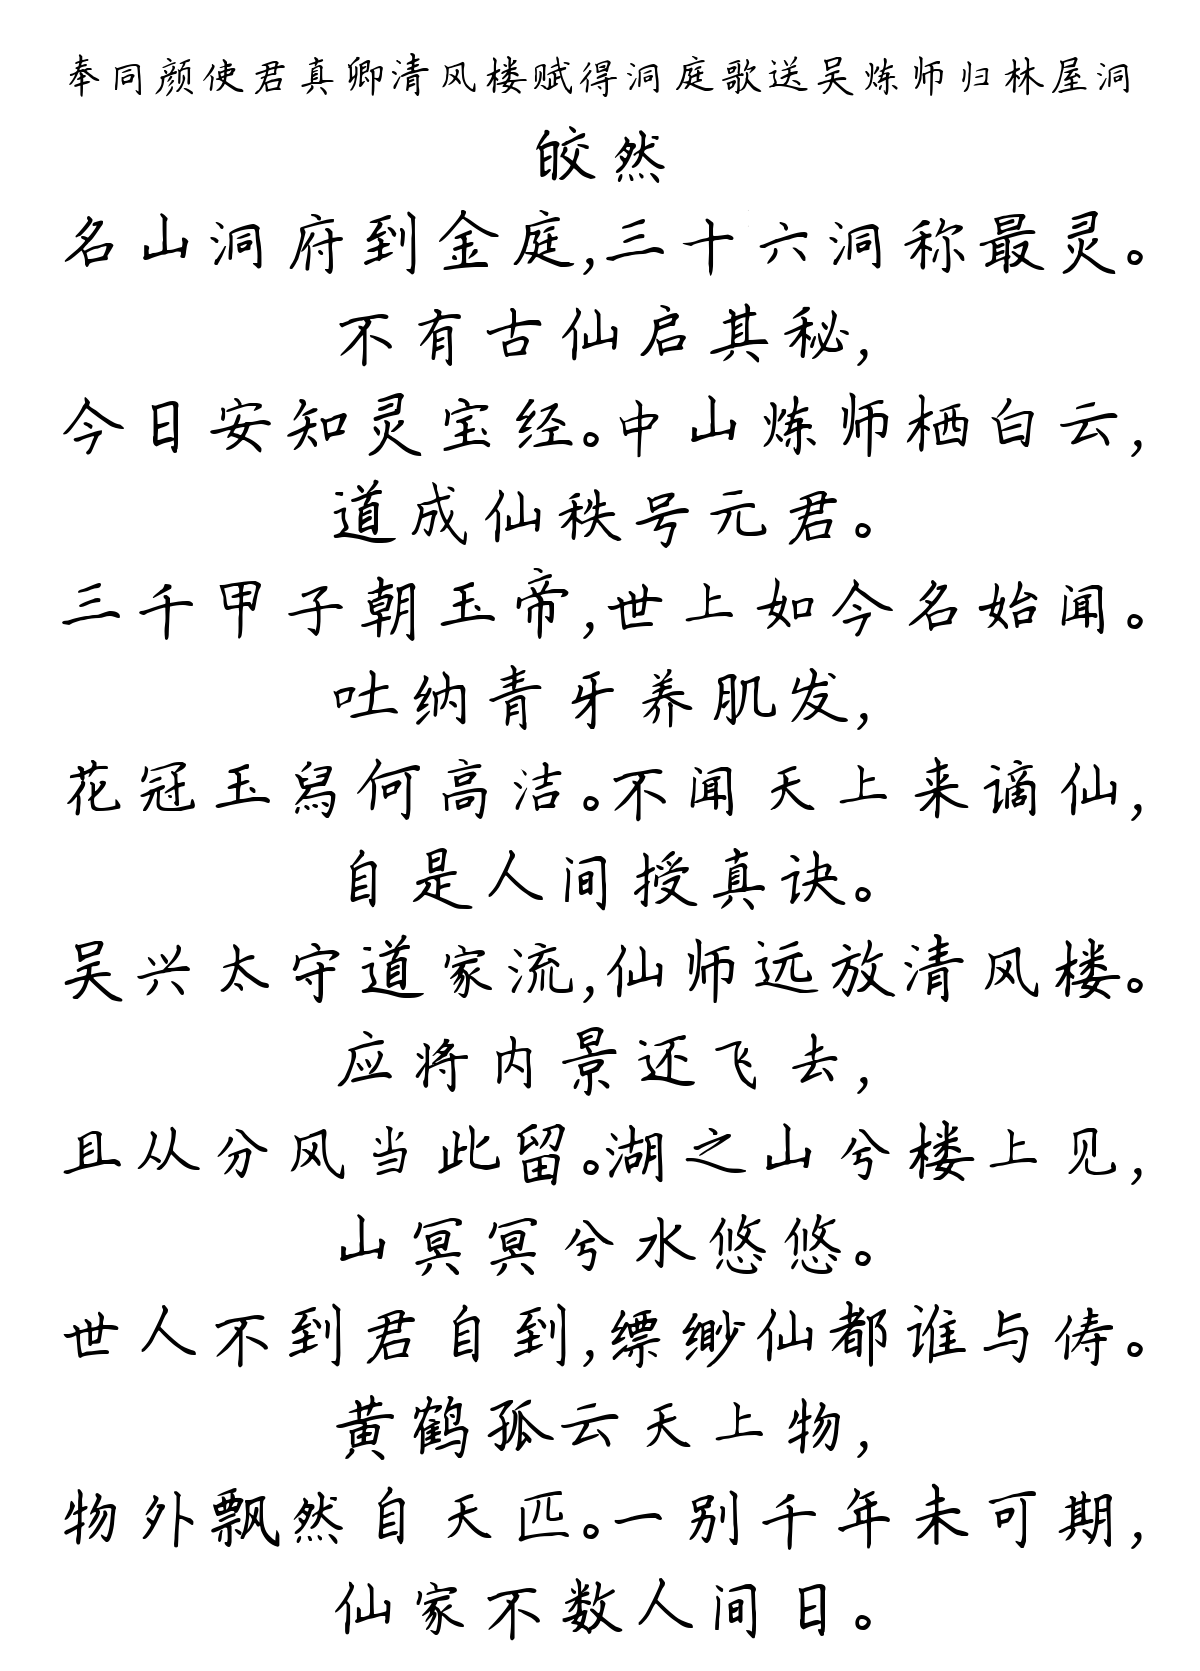 奉同颜使君真卿清风楼赋得洞庭歌送吴炼师归林屋洞
皎然
名山洞府到金庭,三十六洞称最灵。
不有古仙启其秘,
今日安知灵宝经。中山炼师栖白云,
道成仙秩号元君。
三千甲子朝玉帝,世上如今名始闻。
吐纳青牙养肌发,
花冠玉舄何高洁。不闻天上来谪仙,
自是人间授真诀。
吴兴太守道家流,仙师远放清风楼。
应将内景还飞去,
且从分风当此留。湖之山兮楼上见,
山冥冥兮水悠悠。
世人不到君自到,缥缈仙都谁与俦。
黄鹤孤云天上物,
物外飘然自天匹。一别千年未可期,
仙家不数人间日。